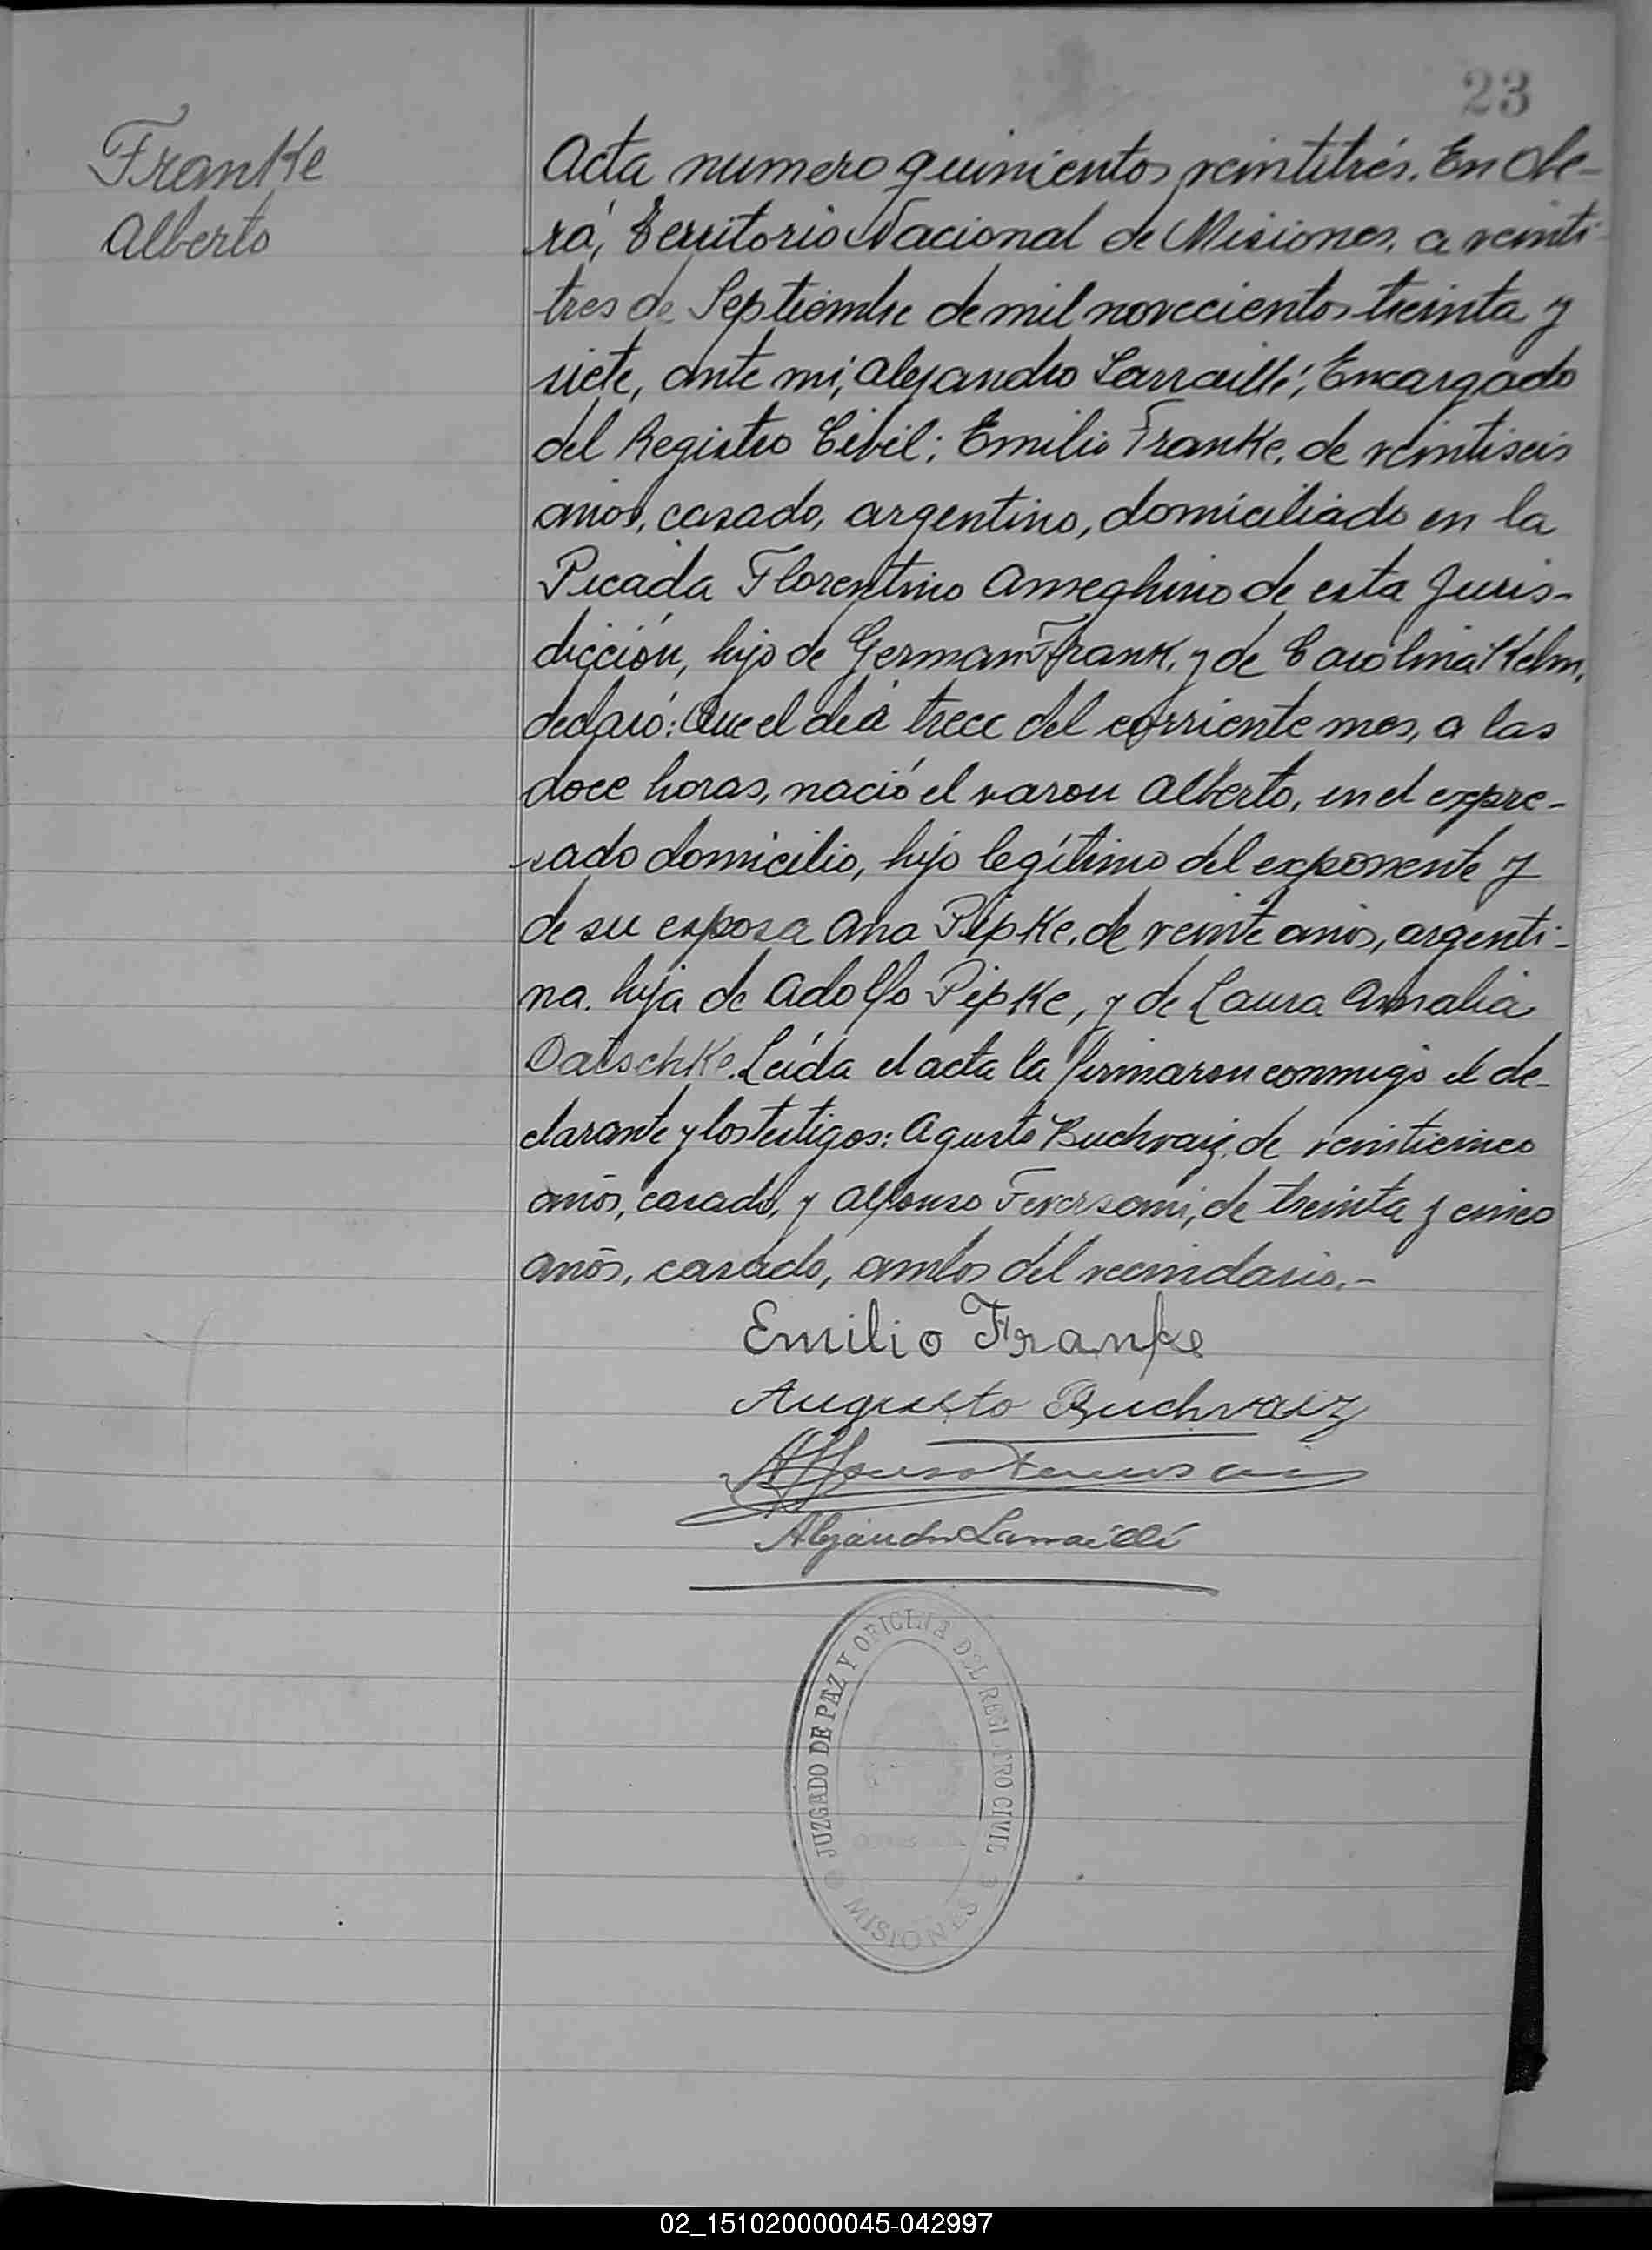 23
Franke
Alberto
Acta numero quinientos veintitrés. En Obe-
rá, Territorio Nacional de Misiones, a veinti-
tres de Septiembre de mil novecientos treinta y
siete, ante mi, Alejandro Larraillé, Encargado
del Registro Civil; Emilio Franke, de veintiseis
años, casado, argentino, domiciliado en la
Picada Florentino Ameghino de esta Juris-
dicción, hijo de German Frank, y de Carolina Kelm,
declaró: Que el dia trece del corriente mes, a las
doce horas, nació el varon Alberto, en el expre-
sado domicilio, hijo legítimo del exponente y
de su esposa Ana Pipke, de veinte años, argenti-
na, hija de Adolfo Pipke, y de Laura Amalia
Datschke. Leída el acta la firmaron conmigo el de-
clarante y los testigos: Agusto Buchvaiz, de veinticinco
años, casado, y Alfonso Feversani, de treinta y cinco
años, casado, ambos del vecindario.-
Emilio Franke
Augusto Buchvaiz
Alfonso
Alejandro Larraillé
JUZGADO DE PAZ Y OFICINA DEL REGISTRO CIVIL
MISIONES
02_151020000045-042997